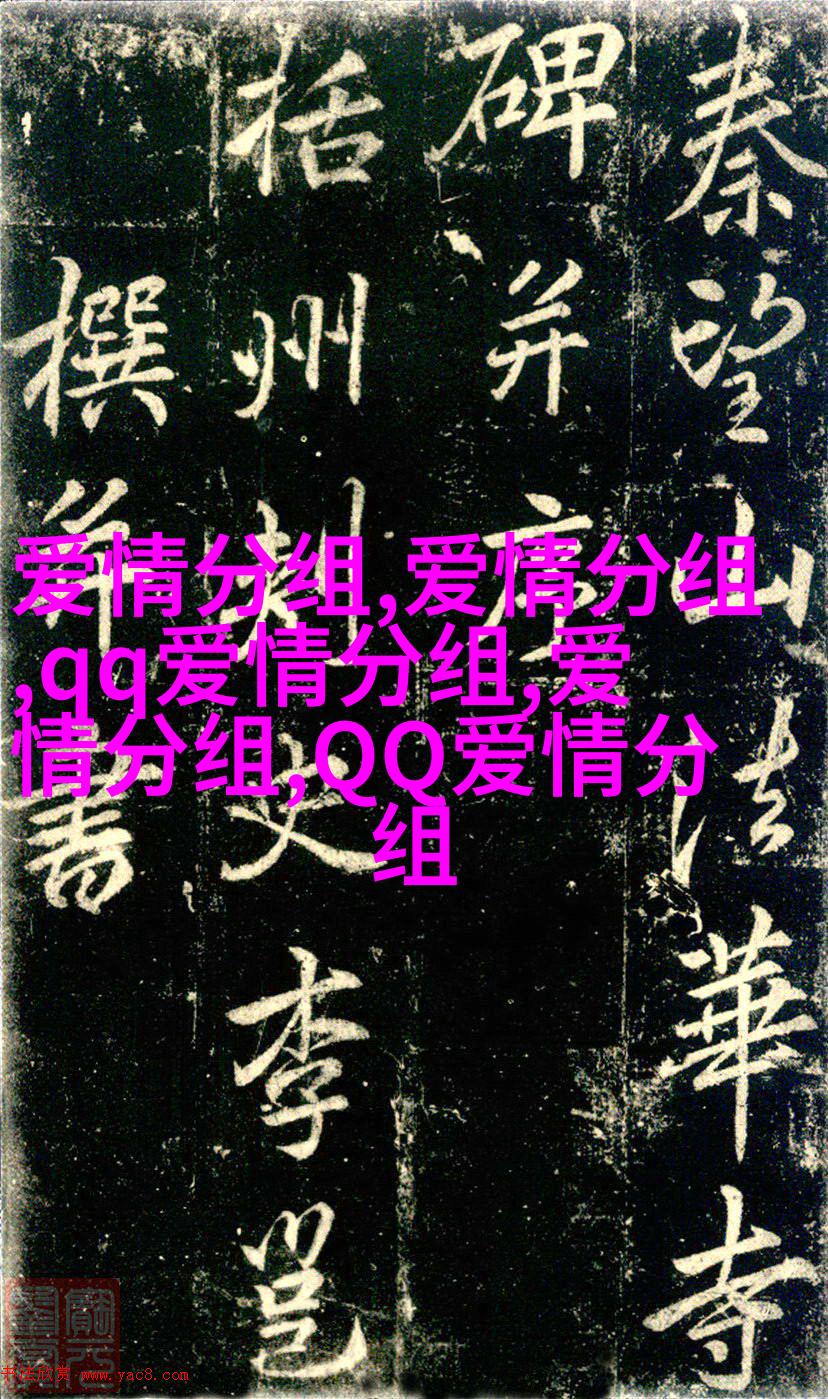 秦望山法華寺
碑并序
括州刺史李邕
撰并書
爱情分组,爱情分组
,qq爱情分组,爱
情分组,QQ爱情分
组
书法欣赏 www.yac8.com